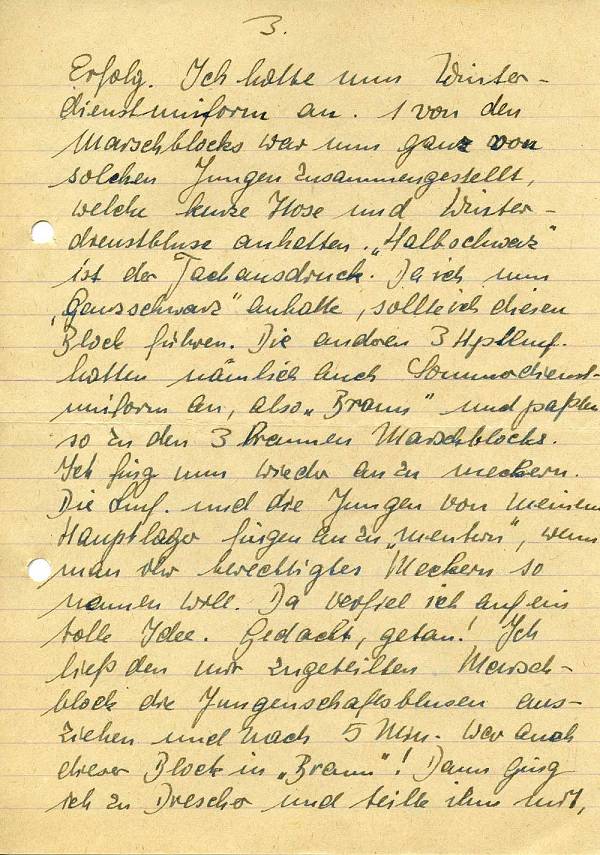 3.
Erfolg. Ich hatte nun Winter-
dienstuniform an. 1 von den
Marschblocks war nun ganz von
solchen Jungen zusammengestellt,
welche kurze Hose und Winter-
dienstbluse anhatten. „Halbschwarz"
ist der Fachausdruck. Da ich nun
„Ganzschwarz" anhatte, sollte ich diesen
Block führen. Die anderen 3 Hptlmf.
hatten nämlich auch Sommerdienst-
uniform an, also „Braun" und paßten
so zu den 3 braunen Marschblocks.
Ich fing nun wieder an zu meckern.
Die Lmf. und die Jungen von meinem
Hauptlager fingen an zu „meutern", wenn
man ihr berechtigtes Meckern so
nennen will. Da verfiel ich auf ein
tolle Idee. Gedacht, getan! Ich
ließ den mir zugeteilten Marsch-
block die Jungenschaftsblusen aus-
ziehen und nach 5 Min. war auch
dieser Block in „Braun"! Dann ging
ich zu Drescher und teilte ihm mit,